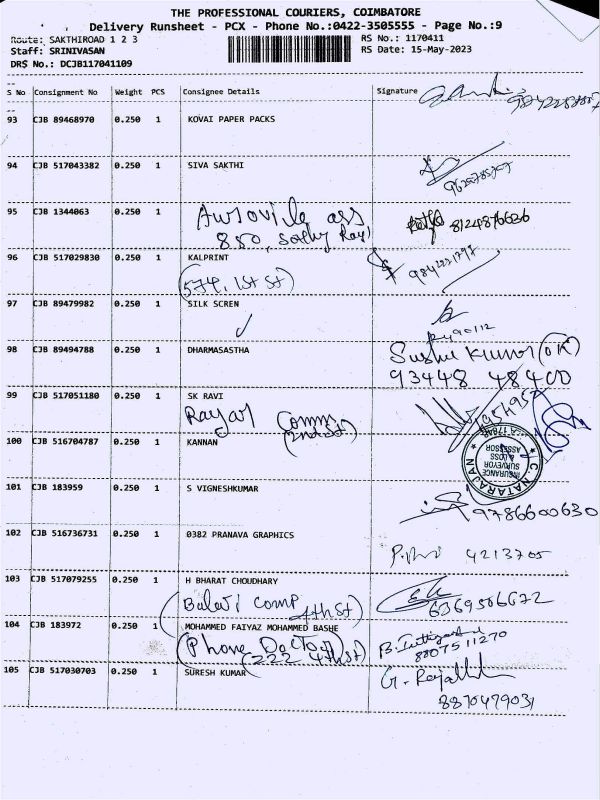 THE PROFESSIONAL COURIERS, COIMBATORE
Delivery Runsheet - PCX - Phone No.:0422-3505555 - Page No.:9
Route: SAKTHIROAD 1 2 3 RS No.: 1170411
Staff: SRINIVASAN RS Date: 15-May-2023
DRS No.: DCJB117041109
S No Consignment No Weight PCS Consignee Details Signature
93 CJB 89468970 0.250 1 KOVAI PAPER PACKS
94 CJB 517043382 0.250 1 SIVA SAKTHI
95 CJB 1344063 0.250 1 8124876636
850,
96 CJB 517029830 0.250 1 KALPRINT
(574, 1st St)
97 CJB 89479982 0.250 1 SILK SCREN
98 CJB 89494788 0.250 1 DHARMASASTHA Kumar (OK)
93448 48400
99 CJB 517051180 0.250 1 SK RAVI
Comm
(2nd St)
100 CJB 516704787 0.250 1 KANNAN
C. NATARAJAN
INSURANCE
SURVEYOR
& LOSS
ASSESSOR
101 CJB 183959 0.250 1 S VIGNESHKUMAR
9786600630
102 CJB 516736731 0.250 1 0382 PRANAVA GRAPHICS
4213705
103 CJB 517079255 0.250 1 H BHARAT CHOUDHARY
Balaji Comp 4th St) 6369506672
104 CJB 183972 0.250 1 MOHAMMED FAIYAZ MOHAMMED BASHE
(Phone Doctor) 8807511270
(222 4th St)
105 CJB 517030703 0.250 1 SURESH KUMAR G.
8870479031